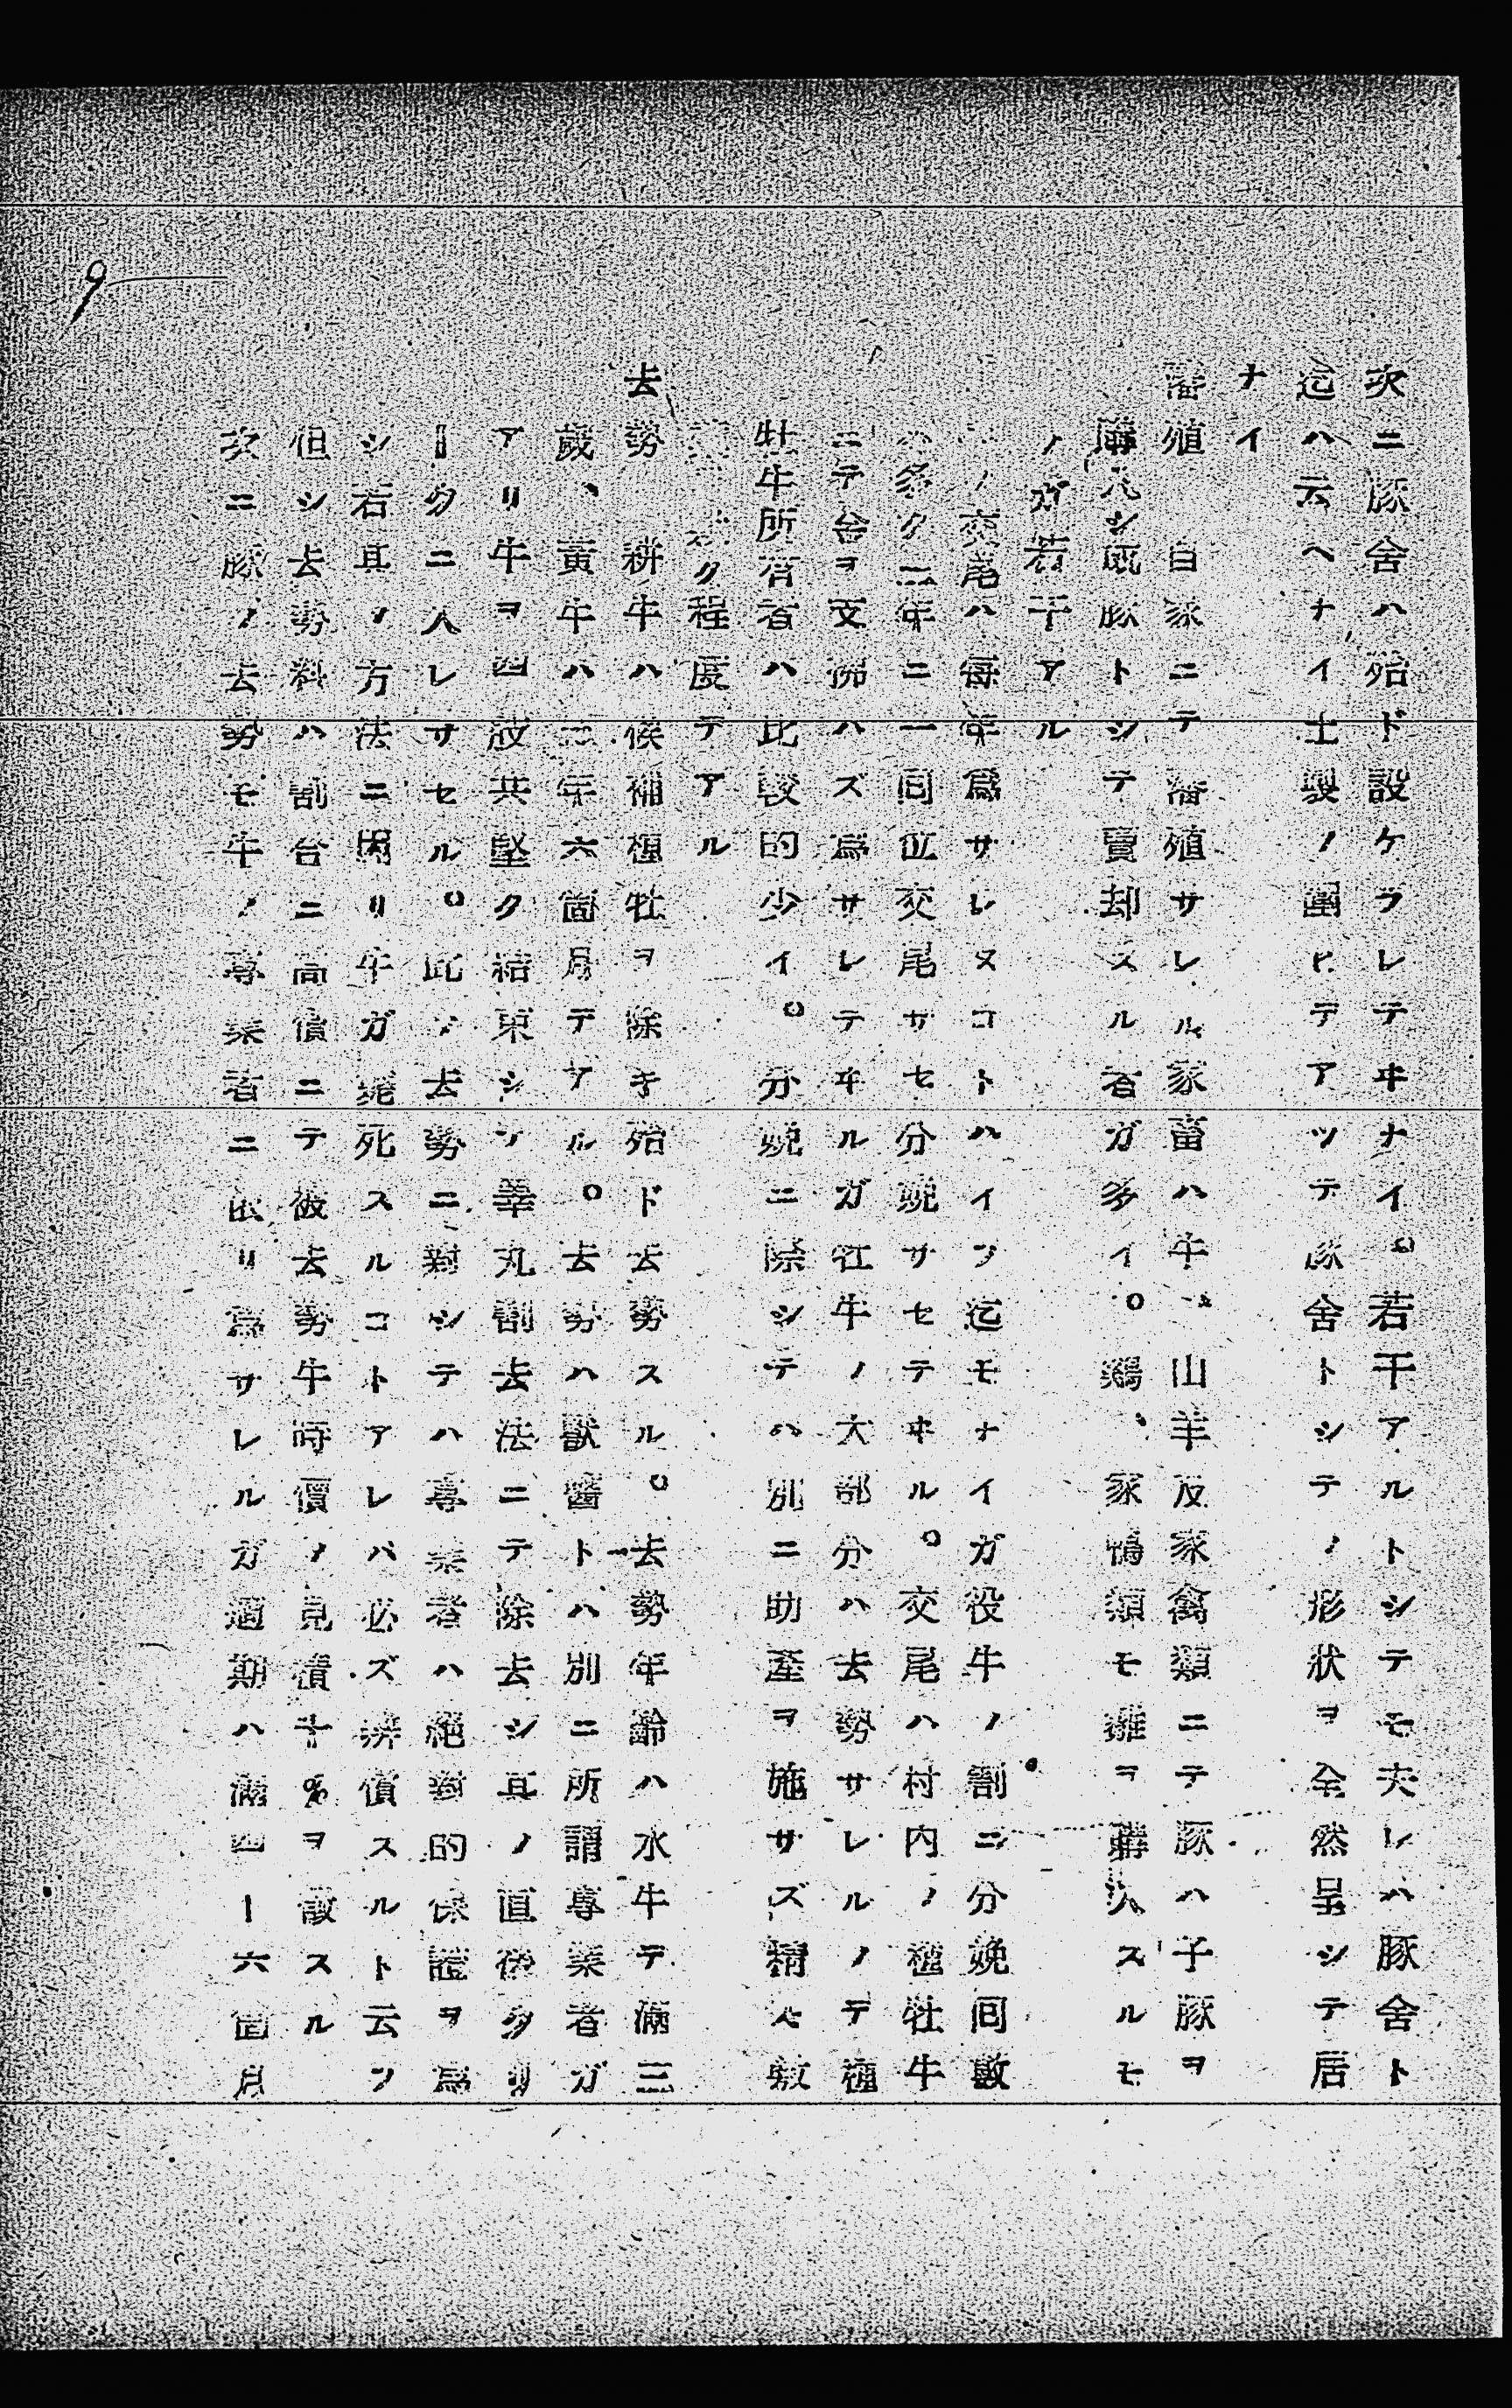 次ニ豚舍ハ殆ド設ケラレテヰナイ。若干アルトシテモ夫レハ豚舍ト
迄ハ云ヘナイ土製ノ圍ヒデアツテ豚舍トシテノ形狀ヲ全然呈シテ居
ナイ
蕃殖 自家ニテ蕃殖サレル家畜ハ牛、山羊及家禽類ニテ豚ハ子豚ヲ
購入シ成豚トシテ賣却スル者ガ多イ。鷄、家鴨類モ雛ヲ購入スルモ
ノガ若干アル
ノ交尾ハ每年爲サレヌコトハイツ迄モナイガ役牛ノ割ニ分娩回數
多ク二年ニ一回位交尾サセ分娩サセテヰル。交尾ハ村内ノ種牡牛
ニテ台ヲ支拂ハズ爲サレテヰルガ牡牛ノ大部分ハ去勢サレルノデ種
牡牛所有者ハ比較的少イ。分娩ニ際シテハ別ニ助產ヲ施サズ精々敷
ク程度デアル
去勢 耕牛ハ候補種牡ヲ除キ殆ド去勢スル。去勢年齡ハ水牛デ滿三
歲、黃牛ハ二年六箇月デアル。去勢ハ獸醫トハ別ニ所謂專業者ガ
アリ牛ヲ四肢共堅ク結束シソノ睾丸割去法ニテ除去シ其ノ直後タリ
ークニ入レサセル。此ノ去勢ニ對シテハ專業者ハ絕對的保證ヲ爲
シ若其ノ方法ニ因リ牛ガ斃死スルコトアレバ必ズ辨償スルト云フ
但シ去勢料ハ割合ニ高價ニテ被去勢牛時價ノ見積十%ヲ徴スル
次ニ豚ノ去勢モ牛ノ專業者ニ依リ爲サレルガ適期ハ滿四ー六箇月